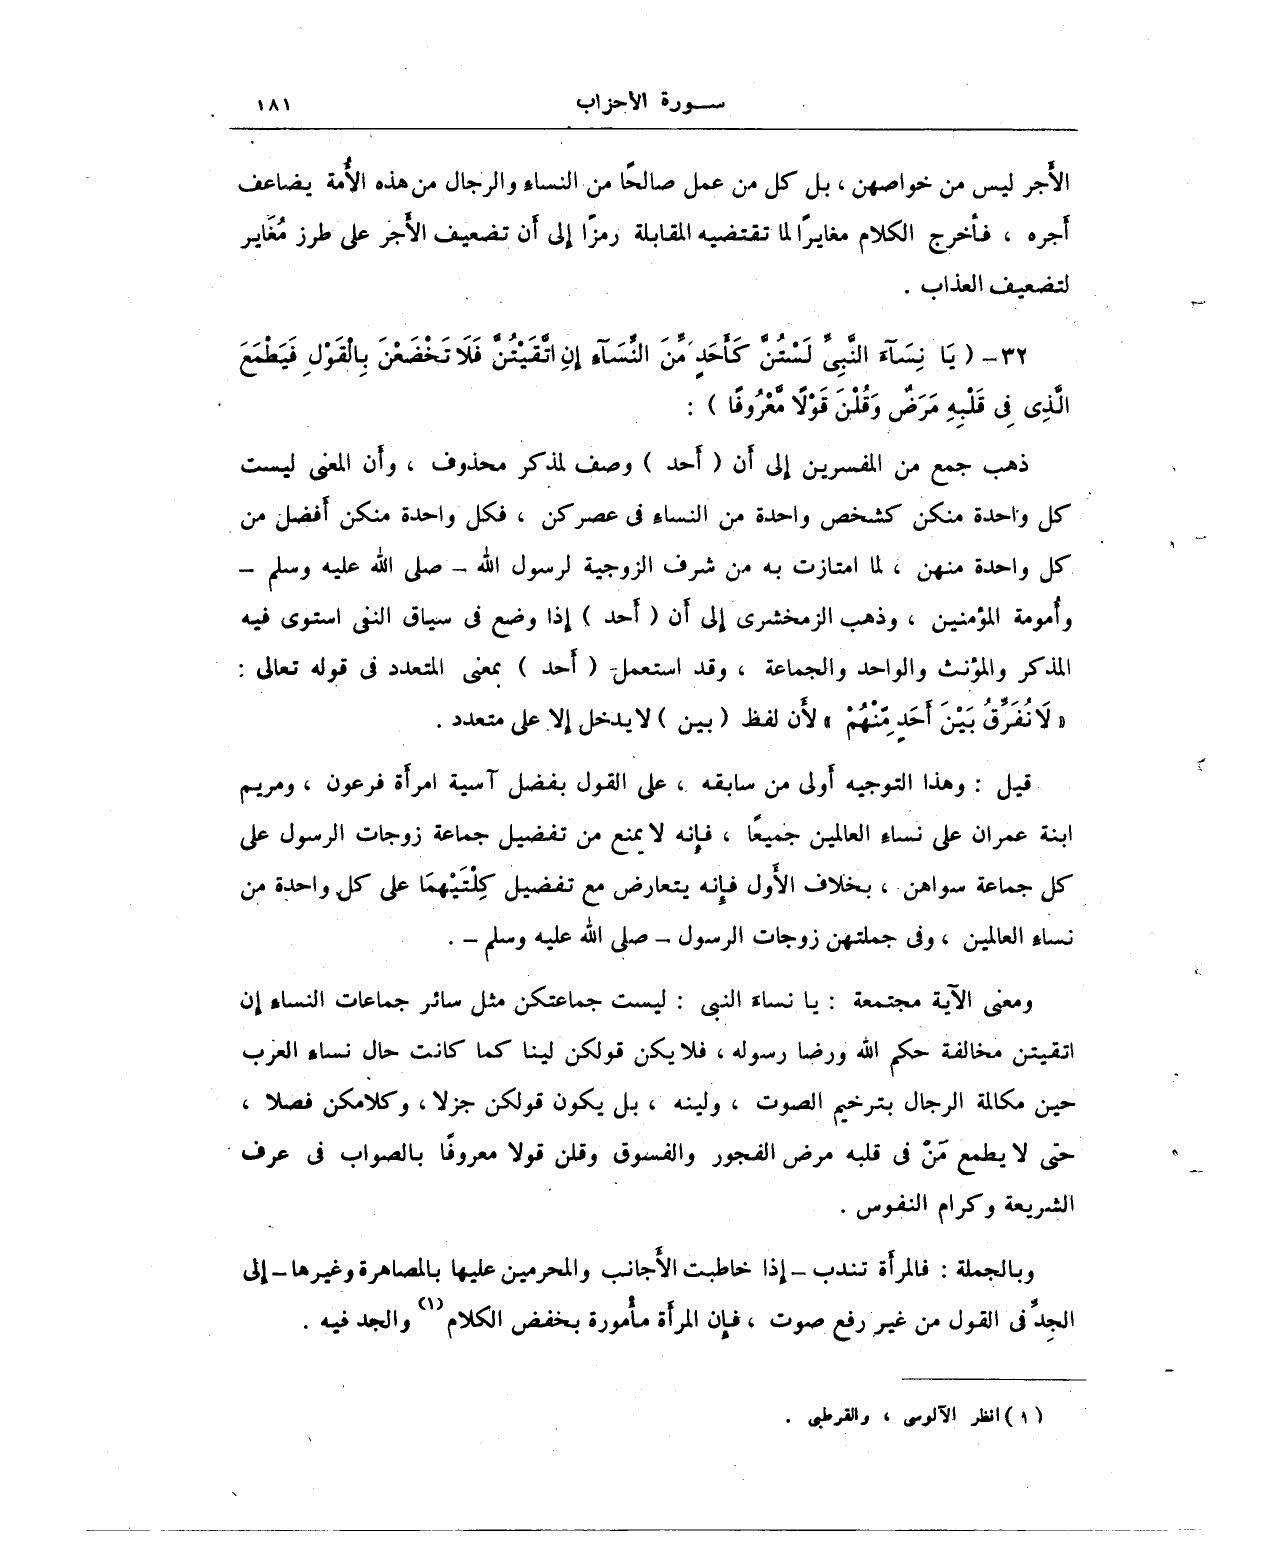 سورة الأحزاب ١٨١
الأَجر ليس من خواصهن ، بل كل من عمل صالحًا من النساء والرجال من هذه الأُمة يضاعف
أَجره ، فأخرج الكلام مغايرًا لما تقتضيه المقابلة رمزًا إلى أن تضعيف الأَجر على طرز مُغَاير
لتضعيف العذاب .
٣٢ـ ( يَا نِسَآءَ النَّبِيِّ لَسْتُنَّ كَأَحَدٍ مِّنَ النِّسَآءِ إِنِ اتَّقَيْتُنَّ فَلَا تَخْضَعْنَ بِالْقَوْلِ فَيَطْمَعَ
الَّذِى فِى قَلْبِهِ مَرَضٌ وَقُلْنَ قَوْلًا مَّعْرُوفًا ) :
ذهب جمع من المفسرين إلى أَن ( أَحد ) وصف لمذكر محذوف ، وأَن المعنى ليست
كل واحدة منكن كشخص واحدة من النساء فى عصركن ، فكل واحدة منكن أَفضل من
كل واحدة منهن ، لما امتازت به من شرف الزوجية لرسول الله ـ صلى الله عليه وسلم ـ
وأُمومة المؤمنين ، وذهب الزمخشرى إلى أَن ( أَحد ) إذا وضع فى سياق النفى استوى فيه
المذكر والمؤنث والواحد والجماعة ، وقد استعمل ( أَحد ) بمعنى المتعدد فى قوله تعالى :
« لَا نُفَرِّقُ بَيْنَ أَحَدٍ مِّنْهُمْ » لأَن لفظ ( بين ) لا يدخل إلا على متعدد .
قيل : وهذا التوجيه أَولى من سابقه ، على القول بفضل آسية امرأَة فرعون ، ومريم
ابنة عمران على نساء العالمين جميعًا ، فإنه لا يمنع من تفضيل جماعة زوجات الرسول على
كل جماعة سواهن ، بخلاف الأَول فإنه يتعارض مع تفضيل كِلْتَيْهِمَا على كل واحدة من
نساء العالمين ، وفى جملتهن زوجات الرسول ـ صلى الله عليه وسلم ـ .
ومعنى الآية مجتمعة : يا نساءَ النبى : ليست جماعتكن مثل سائر جماعات النساء إن
اتقيتن مخالفة حكم الله ورضا رسوله ، فلا يكن قولكن لينا كما كانت حال نساء العرب
حين مكالمة الرجال بترخيم الصوت ، ولينه ، بل يكون قولكن جزلا ، وكلامكن فصلا ،
حتى لا يطمع مَنْ فى قلبه مرض الفجور والفسوق وقلن قولا معروفًا بالصواب فى عرف
الشريعة وكرام النفوس .
وبالجملة : فالمرأَة تندب ـ إذا خاطبت الأَجانب والمحرمين عليها بالمصاهرة وغيرها ـ إلى
الجِدِّ فى القول من غير رفع صوت ، فإن المرأَة مأْمورة بخفض الكلام (١) والجد فيه .
(١) انظر الآلوسى ، والقرطبى .